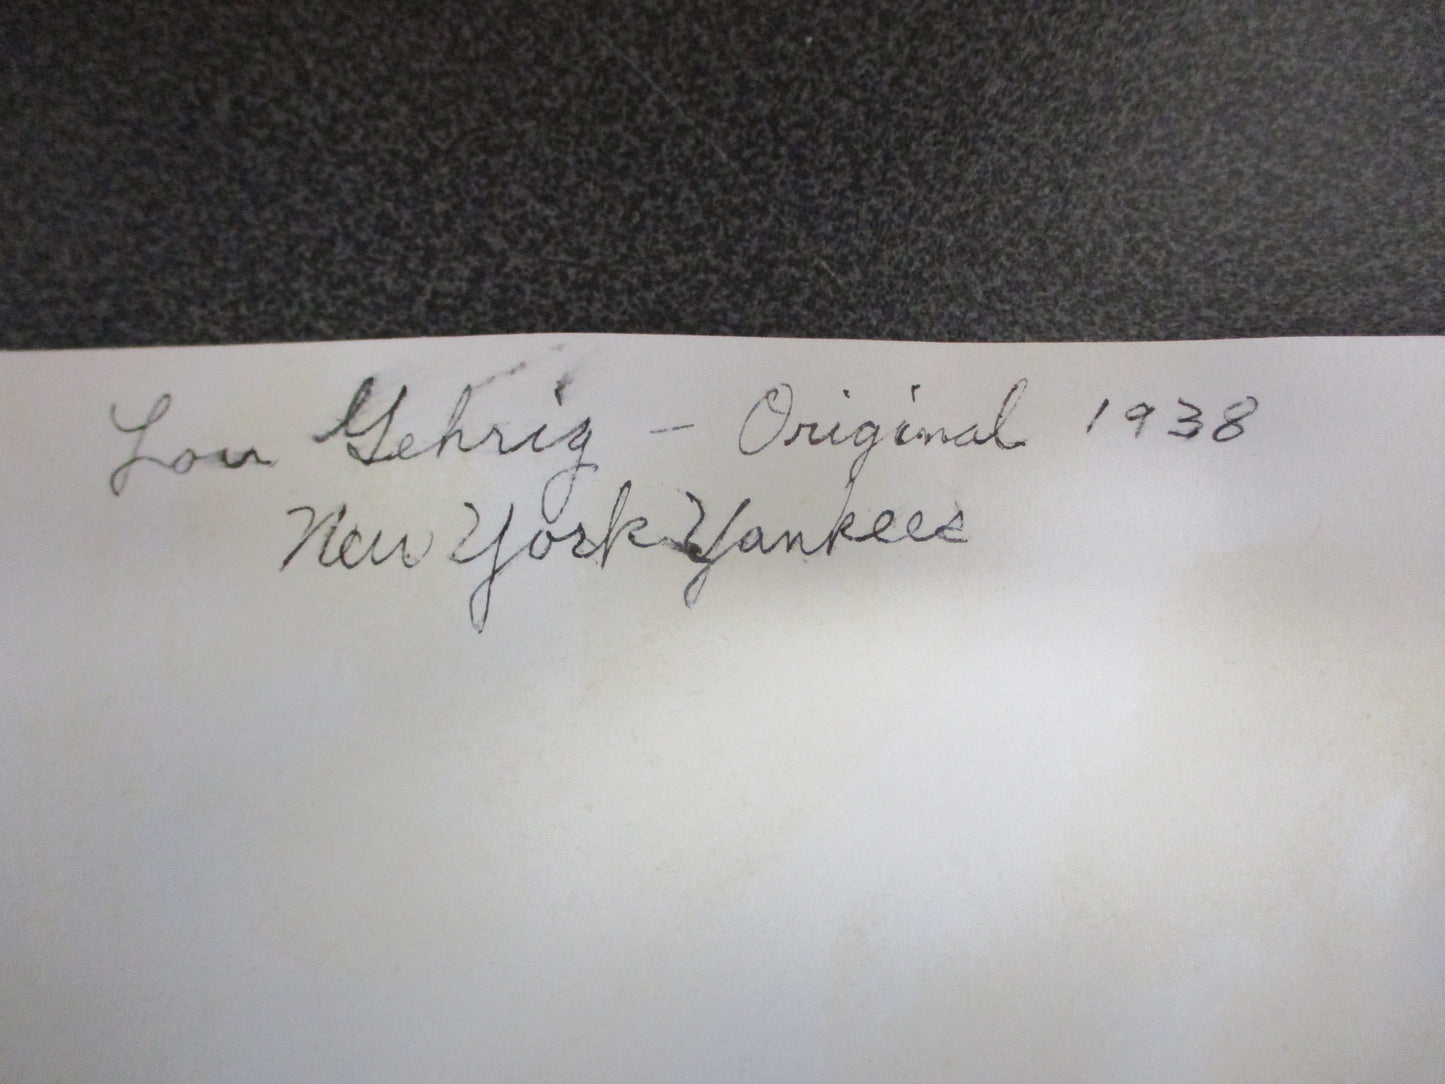 Lou Gehrig - Original 1938
New York Yankees